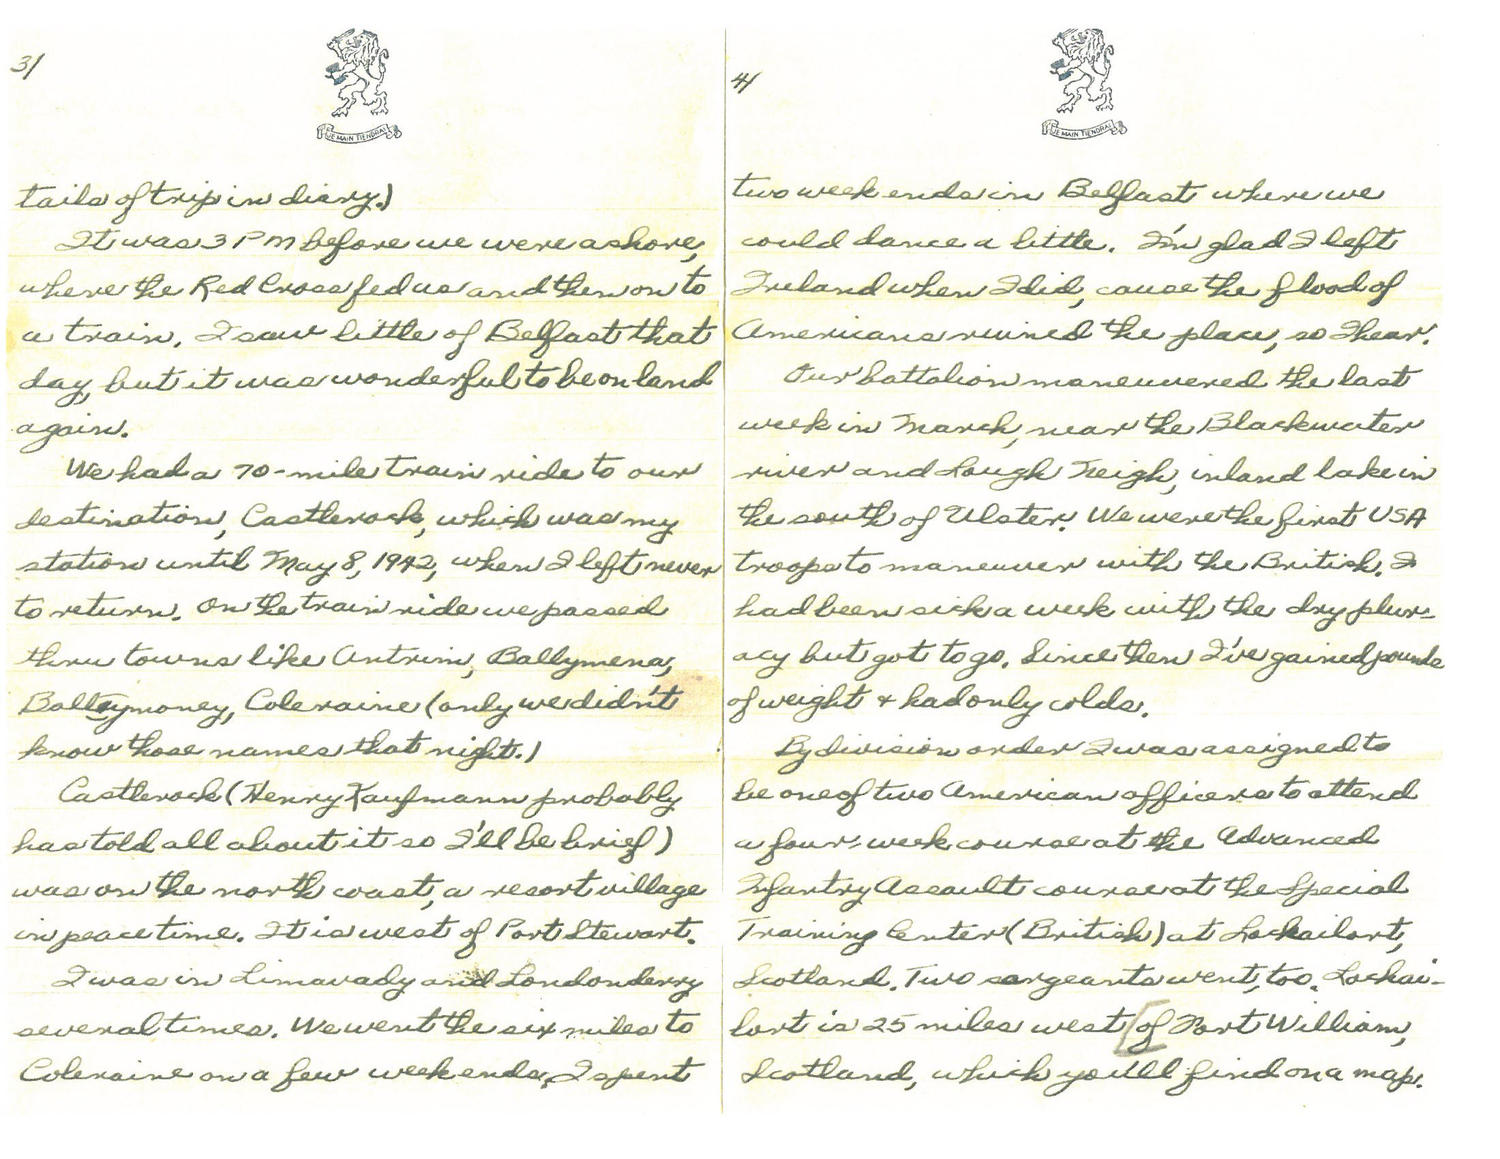 3/
JE MAIN TIENDRAI
tails of trip in diary.)
It was 3 PM before we were ashore,
where the Red Cross fed us and then on to
a train. I saw little of Belfast that
day, but it was wonderful to be on land
again.
We had a 70-mile train ride to our
destination, Castlerock, which was my
station until May 8, 1942, when I left never
to return. On the train ride we passed
thru towns like Antrim, Ballymena,
Ballymoney, Coleraine (only we didn't
know those names that night.)
Castlerock (Henry Kaufmann probably
has told all about it so I'll be brief)
was on the north coast, a resort village
in peace time. It is west of Port Stewart.
I was in Limavady and Londonderry
several times. We went the six miles to
Coleraine on a few week ends, I spent
4/
JE MAIN TIENDRAI
two week ends in Belfast where we
could dance a little. I'm glad I left
Ireland when I did, cause the flood of
Americans ruined the place, so I hear.
Our battalion maneuvered the last
week in March, near the Blackwater
river and Lough Neigh, inland lake in
the south of Ulster. We were the first USA
troops to maneuver with the British. I
had been sick a week with the dry plur-
acy but got to go. Since then I've gained pounds
of weight + had only colds.
By division order I was assigned to
be one of two American officers to attend
a four-week course at the Advanced
Infantry Assault course at the Special
Training Center (British) at Lochailort,
Scotland. Two sargeants went, too. Lochai-
lort is 25 miles west [of Fort William,
Scotland, which you'll find on a map.